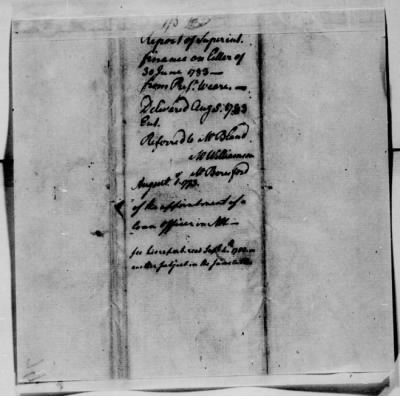 Report of Superint.
finance on letter of
30 June 1783 —
from Prest. Weare. —
Delivered Aug. 5. 1783
Ent.
Referred to Mr Bland
Mr Williamson
Mr Beresford
August 7 1783.
of the appointment of a
loan officer in
see his report recd Sept.
on the subject in the